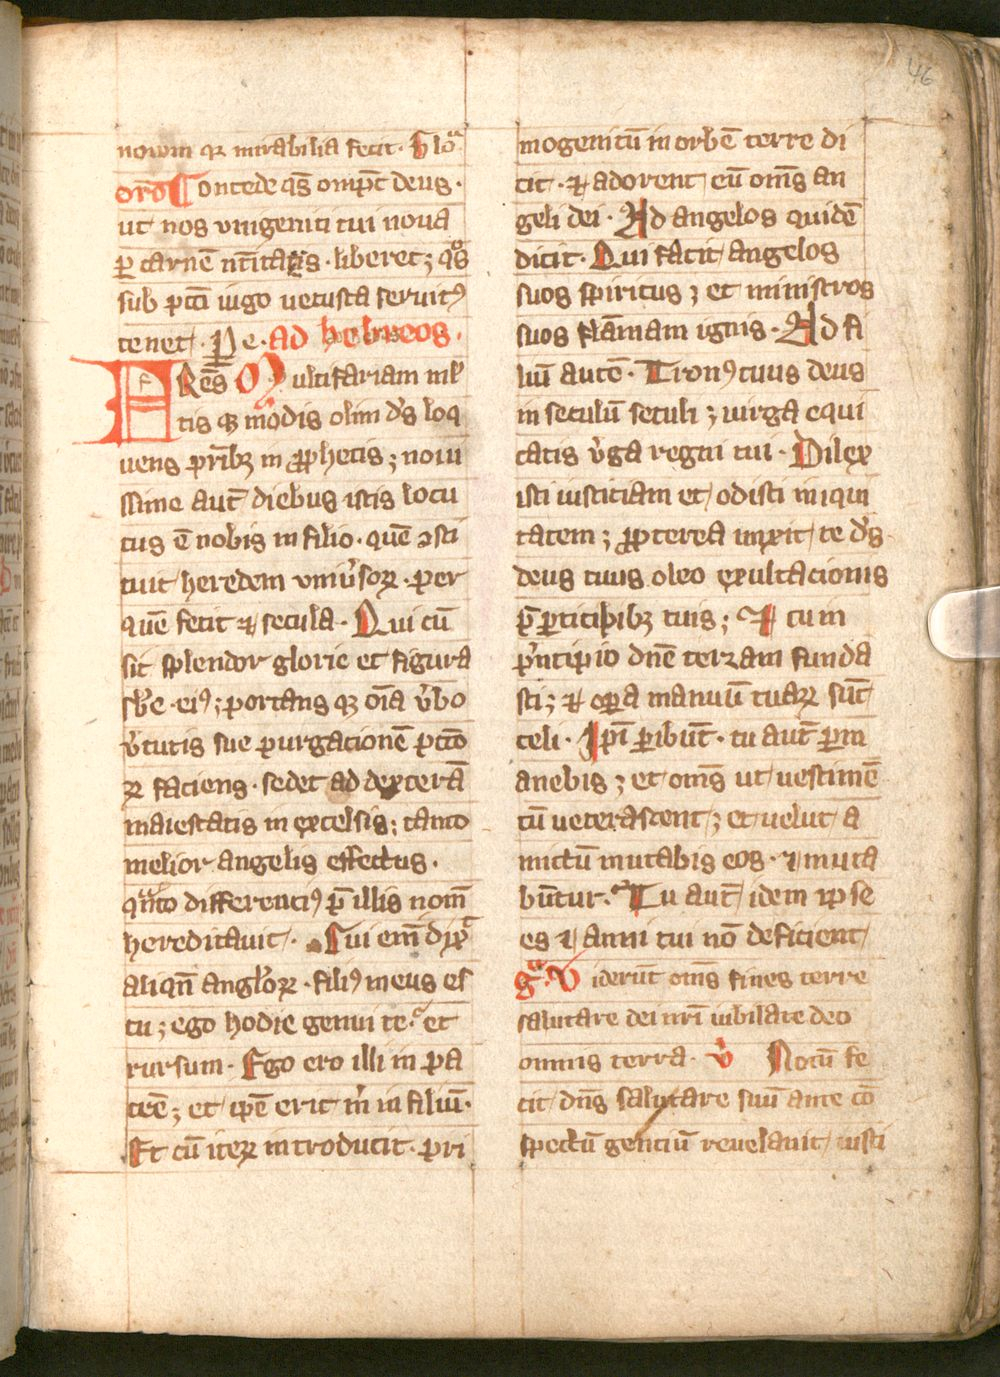 46
novum qꝫ mirabilia fecit · Gloᵃ
oro Concede qs̄ omp̄c deus ·
ut nos vnigeniti tui noua
ꝑ carnē nītas · liberet ; qᵒs
sub pcti iugo uetusta seruitꝰ
tenet · Pe · ad hebreos ·
FRēs Multifariam ml
tis qꝫ modis olim ds̓ loq
uens prībꝫ in ꝓphetis ; noui
ssime aut̄ diebus istis locu
tus ē nobis in filio · quē ꝯsti
tuit heredem vniūsoꝝ · per
quē fecit ⁊ secula · Qui cū
sit splendor glorie et figura
sb̓e · eiꝰ ; portans qꝫ oīa v̓bo
v̓tutis sue purgacionē pcto
ꝝ faciens · sedet ad dexterā
maiestatis in excelsis ; tanto
melior angelis effectus ·
qᵃnto differenciꝰ p̄ illis nom̄
hereditauit · Cui em̄ dixᵃ
aliqn̄ anglōꝝ · filiꝰ meus es
tu ; ego hodie genui te · et
rursum · Ego ero illi in pa
trē ; et ipē erit m̓ in filiū ·
Et cū iteꝝ introducit · pri
mogenitū in orbē terre di
cit · ⁊ adorent eū om̄s an
geli dei · Ad angelos quidē
dicit · Qui facit angelos
suos spiritus ; et ministros
suos flāmam ignis · Ad fi
liū autē · Tronꝰ tuus deus
in seculū seculi ; uirga equi
tatis v̓ga regni tui · Dilex
isti iusticiam et odisti iniqui
tatem ; ꝓpterea unxit te ds̓
deus tuus oleo exultacionis
p̄ ꝑticipibꝫ tuis ; Et tu in
pⁱncipio dnē terram funda
sti ; ⁊ oꝑa manuū tuaꝝ sūt
celi · Ip̄i ꝑibūt · tu aut̄ ꝑm
anebis ; et om̄s ut uestimē
tū ueterascent ; et uelut a
mictū mutabis eos · ⁊ muta
būtur · Tu aut̄ idem ipse
es ⁊ anni tui nō deficient
gᵃ · Viderūt om̄s fines terre
salutare dei nrī iubilate deo
omnis terra · v̓ Notū fe
cit dn̄s salutare suū ante cō
spectū genciū reuelauit iusti